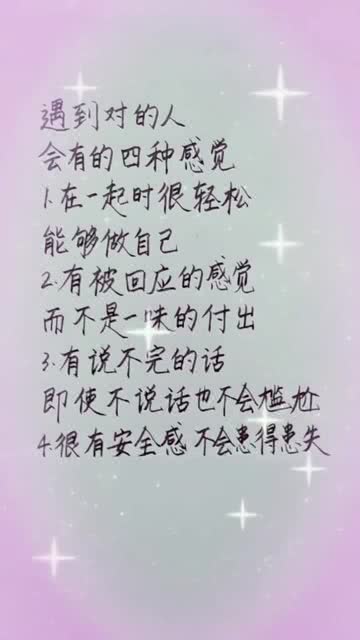 遇到对的人
会有的四种感觉
1.在一起时很轻松
能够做自己
2.有被回应的感觉
而不是一味的付出
3.有说不完的话
即使不说话也不会尴尬
4.很有安全感 不会患得患失